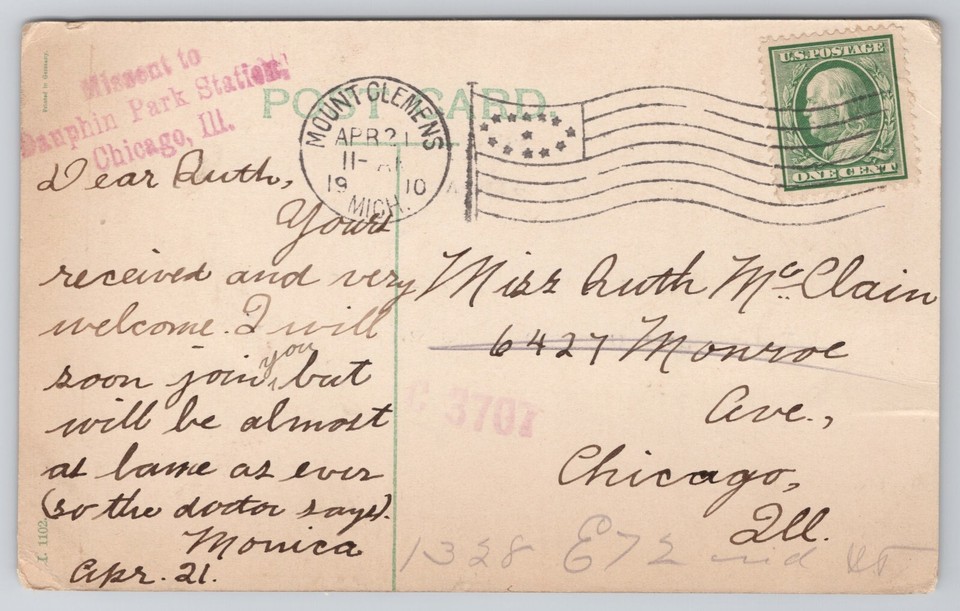 Missent to
Dauphin Park Station,
Chicago, Ill.
POST CARD.
MOUNT CLEMENS
APR 21
11- A
1910
MICH.
U.S. POSTAGE
ONE CENT
Dear Ruth,
Yours
received and very
welcome. I will
soon join you, but
will be almost
as lame as ever
(so the doctor says).
Monica
Apr. 21.
Miss Ruth McClain
6427 Monroe
Ave.,
Chicago,
Ill.
C 3701
1328 E 72nd St
I. 1102.
Printed in Germany.